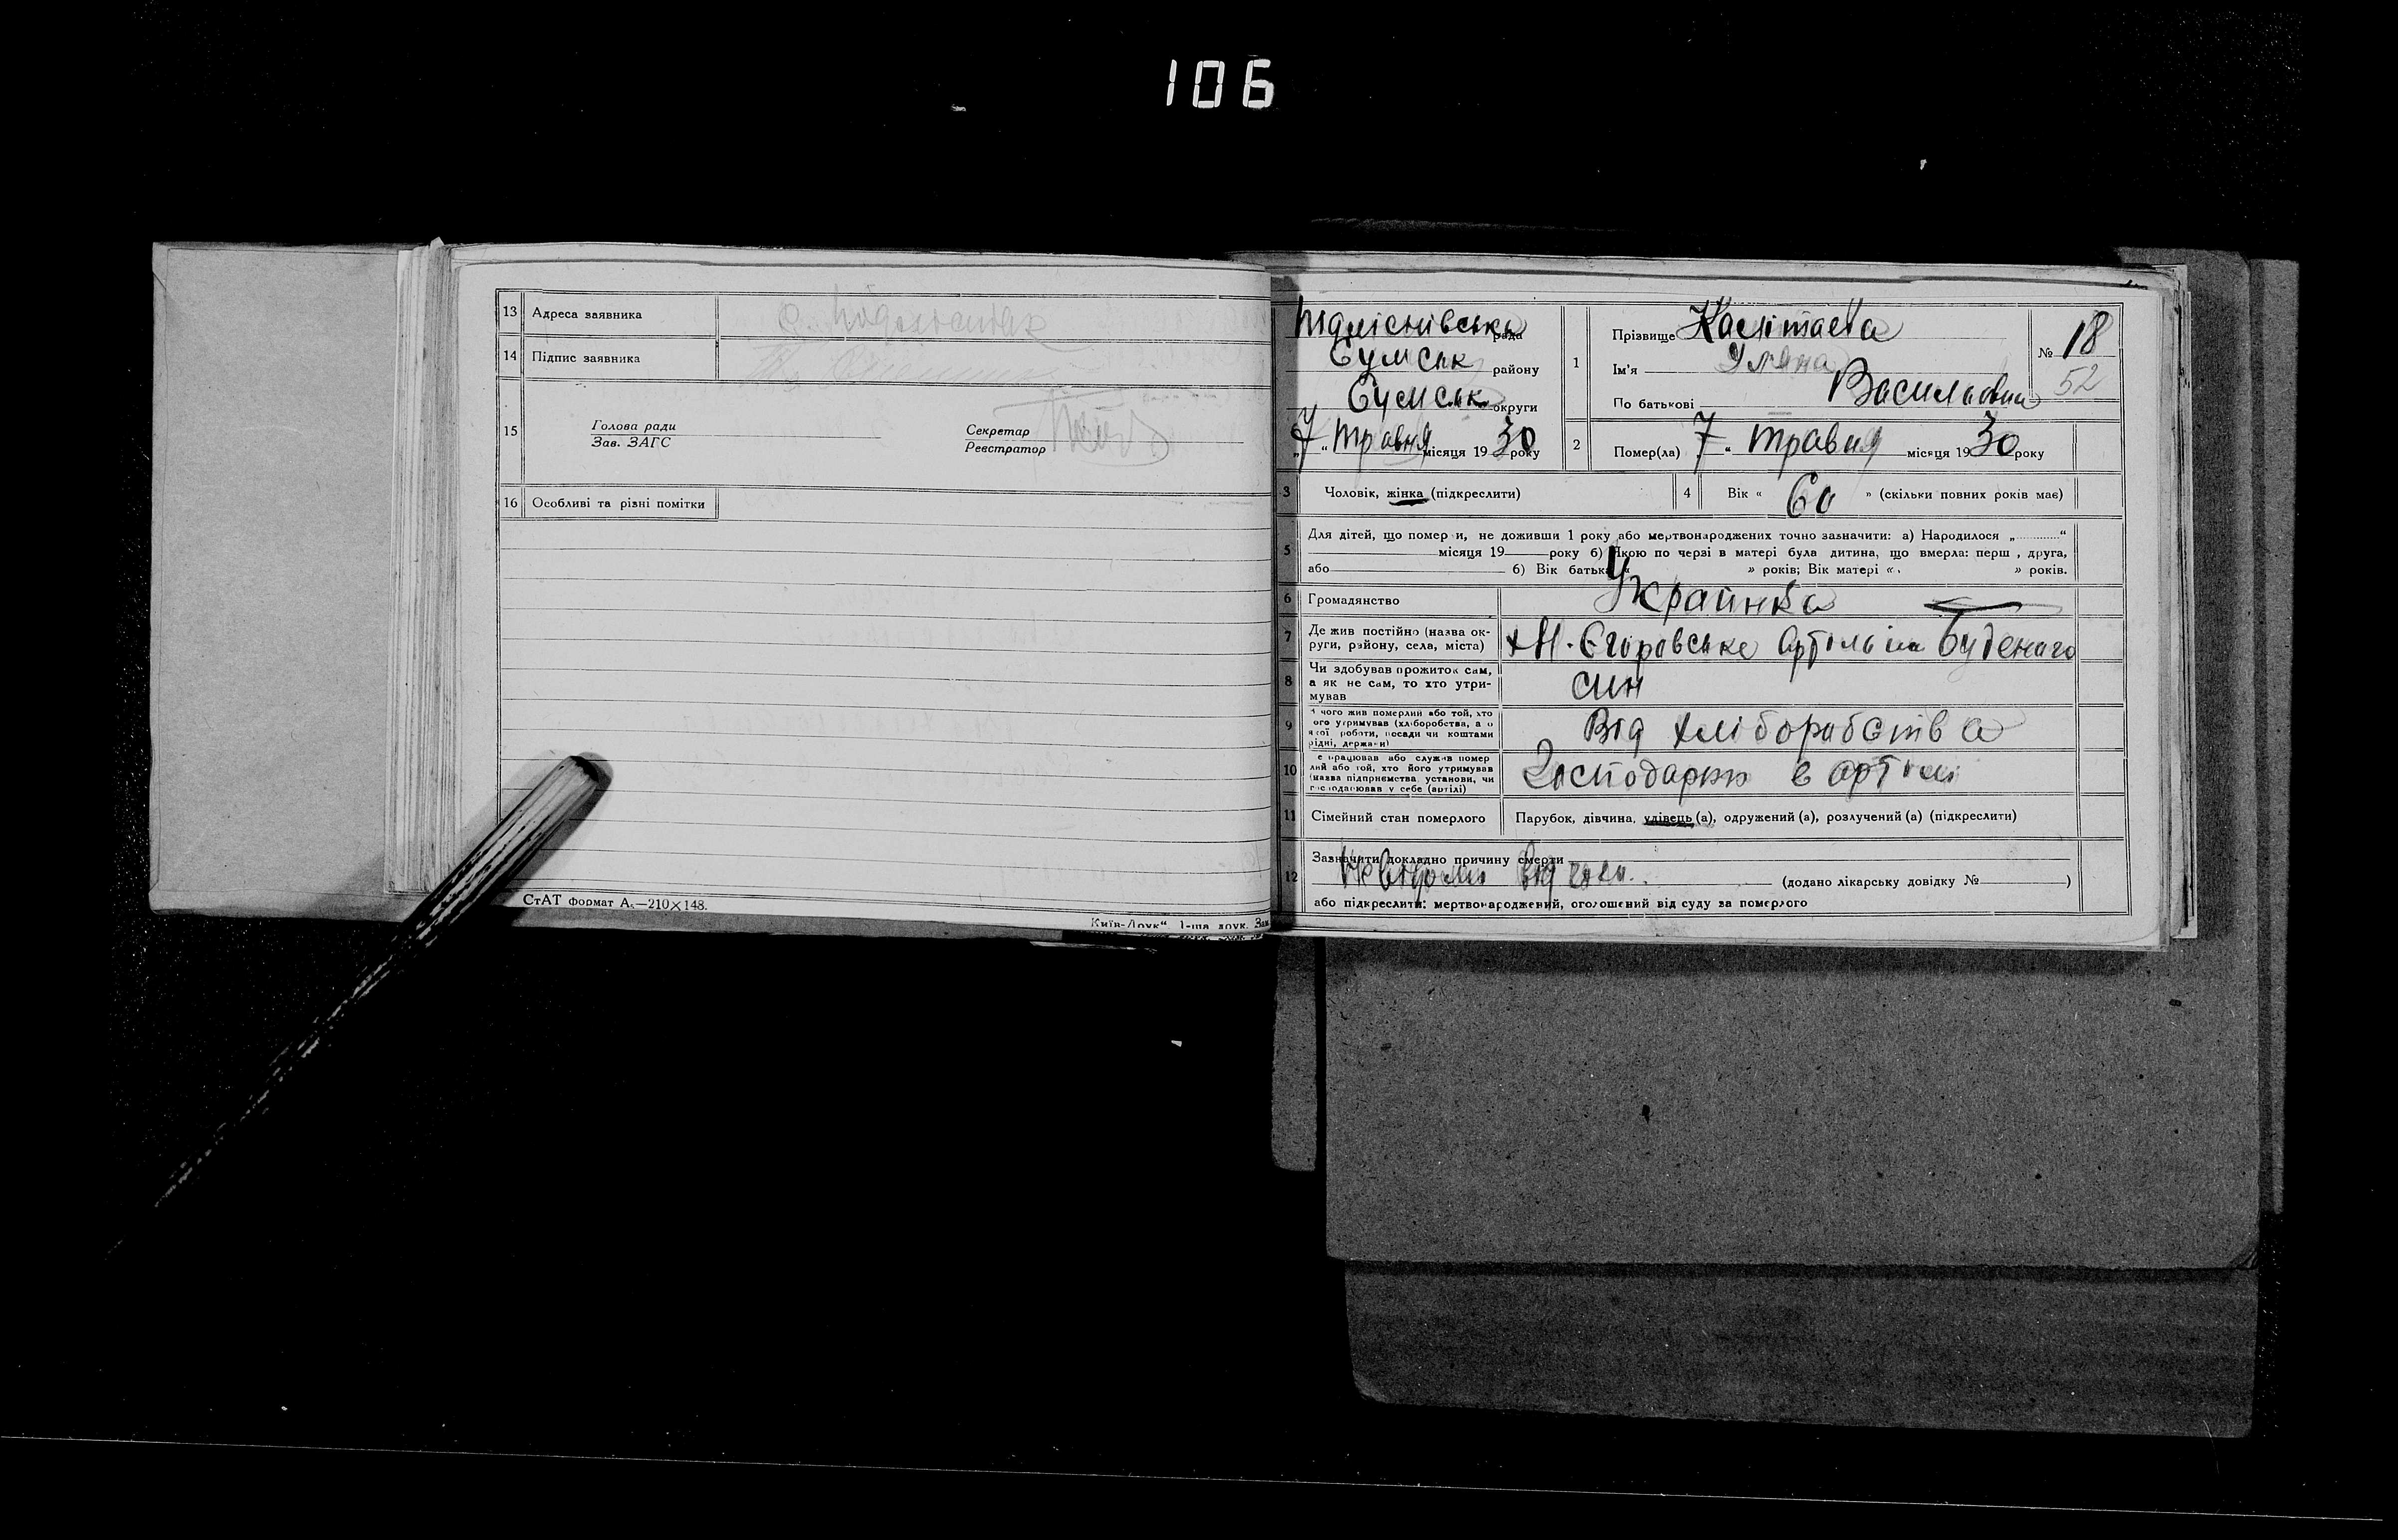 106
13 Адреса заявника
14 Підпис заявника
15 Голова ради
Зав. ЗАГС
Секретар
Реєстратор
16 Особливі та різні помітки
СтАТ формат А₅—210×148.
Київ-Друк“ 1-ша друк. Зам
рада
Сумськ району
Сумськ округи
„7“ травня місяця 1930 року
1 Прізвище
Ім'я Уляна
По батькові Васильовна
№ 18
52
2 Помер(ла) 7 “ травня місяця 1930 року
3 Чоловік, жінка (підкреслити)
4 Вік « 60 » (скільки повних років має)
5 Для дітей, що померли, не доживши 1 року або мертвонароджених точно зазначити: а) Народилося „ “
місяця 19 року б) Якою по черзі в матері була дитина, що вмерла: перш , друга,
або б) Вік батька « » років; Вік матері « » років.
6 Громадянство Украинка
7 Де жив постійно (назва ок-
руги, району, села, міста) Артель Буденаго
8 Чи здобував прожиток сам,
а як не сам, то хто утри-
мував син
9 чого жив померлий або той, хто
ого утримував (хліборобства, а о
якої роботи, посади чи коштами
рідні, держави) Від хліборобства
10 е працював або служив помер
лий або той, хто його утримував
(назва підприємства установи, чи
господарював у себе (артілі) в артілі
11 Сімейний стан померлого Парубок, дівчина, удівець (а), одружений (а), розлучений (а) (підкреслити)
12 Зазначити докладно причину смерти
(додано лікарську довідку № )
або підкреслити: мертвонароджений, оголошений від суду за померлого